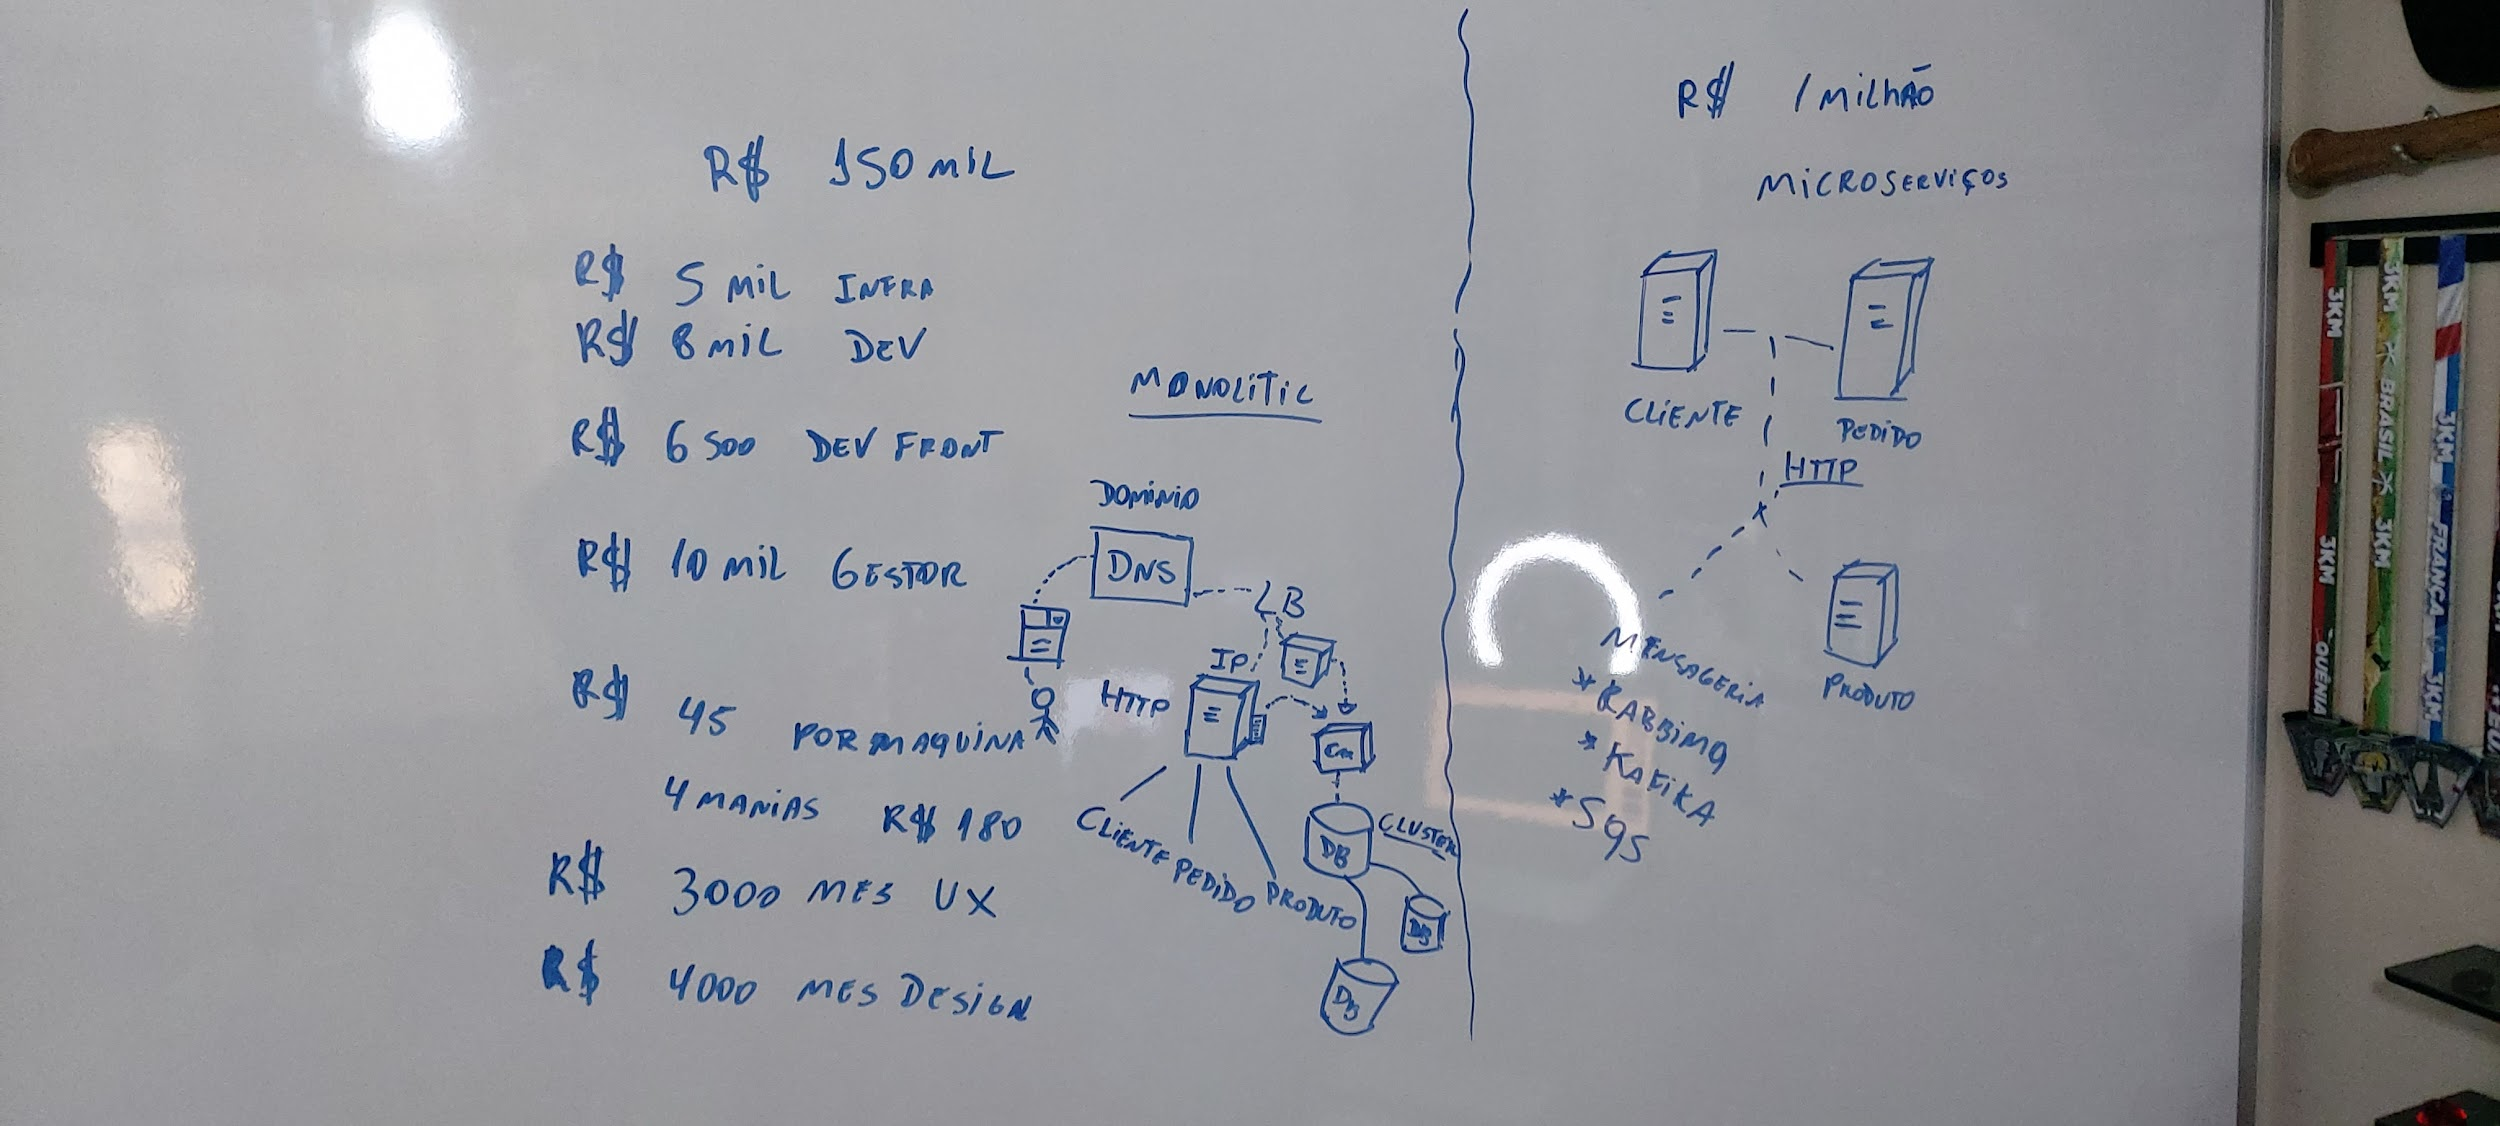 R$ 150 MIL
R$ 5 MIL INFRA
R$ 8 MIL DEV
R$ 6 500 DEV FRONT
R$ 10 MIL GESTOR
R$ 45 POR MAQUINA
4 MANIAS R$ 180
R$ 3000 MES UX
R$ 4000 MES DESIGN
MONOLITIC
DOMINIO
DNS
LB
IP
HTTP
CLIENTE
PEDIDO
PRODUTO
DB
CLUSTER
DB
DB
R$ 1 MILHÃO
MICROSERVIÇOS
CLIENTE
PEDIDO
HTTP
PRODUTO
MENSAGERIA
* RABBIMQ
* KAFIKA
* SQS
3KM
3KM
QUÊNIA
3KM
BRASIL
3KM
3KM
FRANÇA
3KM